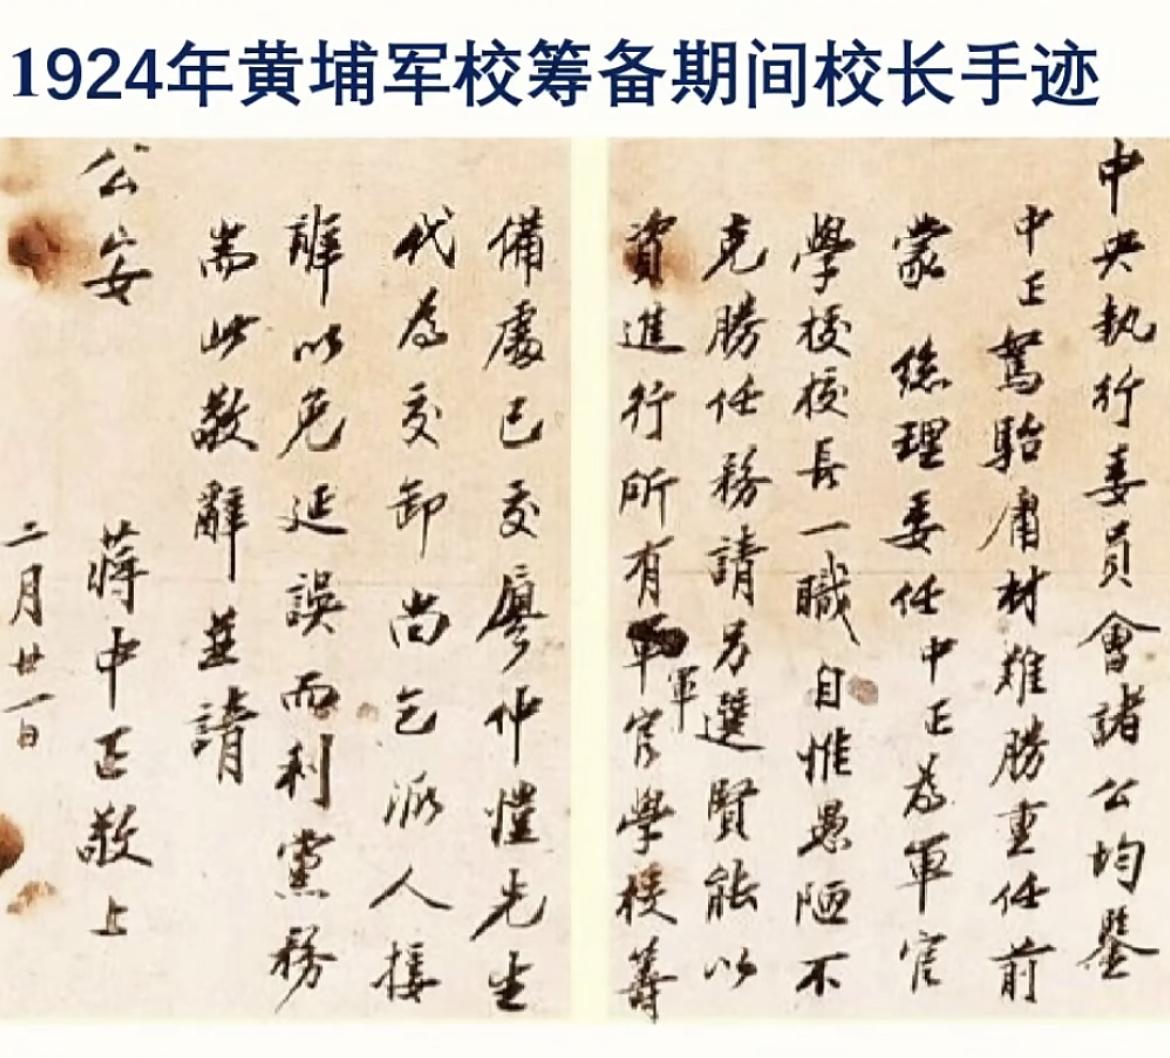 1924年黄埔军校筹备期间校长手迹
中央執行委員會諸公均鑒
中正駑駘庸材難勝重任前
蒙 總理委任中正為軍官
學校校長一職自惟愚陋不
克勝任務請另選賢能以
資進行所有軍官學校籌
備處已交廖仲愷先生
代為交卸尚乞派人接
辦以免延誤而利黨務
耑此敬辭並請
公安
蔣中正敬上
二月廿一日